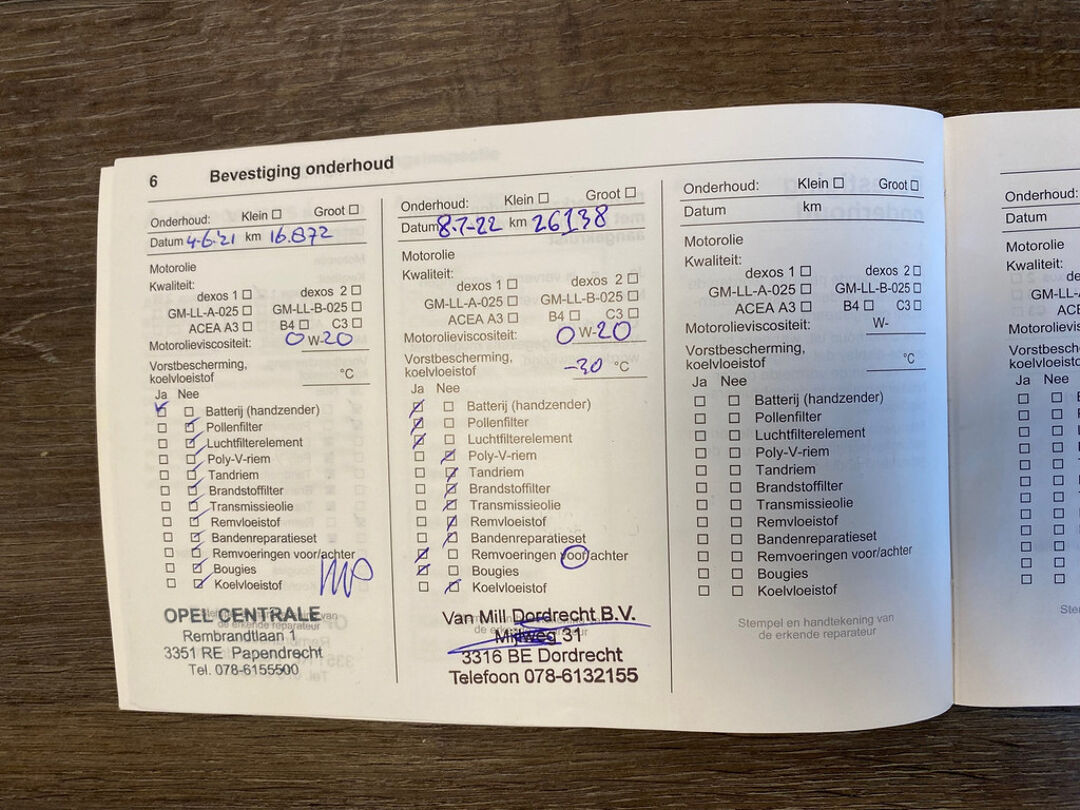 6 Bevestiging onderhoud
Onderhoud: Klein ☐ Groot ☐
Datum 4-6-'21 km 16.872
Motorolie
Kwaliteit:
dexos 1 ☐ dexos 2 ☐
GM-LL-A-025 ☐ GM-LL-B-025 ☐
ACEA A3 ☐ B4 ☐ C3 ☐
Motorolieviscositeit: 0 W-20
Vorstbescherming,
koelvloeistof °C
Ja Nee
☑ ☐ Batterij (handzender)
☐ ☑ Pollenfilter
☐ ☑ Luchtfilterelement
☐ ☑ Poly-V-riem
☐ ☑ Tandriem
☐ ☑ Brandstoffilter
☐ ☑ Transmissieolie
☐ ☑ Remvloeistof
☐ ☑ Bandenreparatieset
☐ ☑ Remvoeringen voor/achter
☐ ☑ Bougies
☐ ☑ Koelvloeistof
OPEL CENTRALE
de erkende reparateur
Rembrandtlaan 1
3351 RE Papendrecht
Tel. 078-6155500
Onderhoud: Klein ☐ Groot ☐
Datum 8-7-22 km 26138
Motorolie
Kwaliteit:
dexos 1 ☐ dexos 2 ☐
GM-LL-A-025 ☐ GM-LL-B-025 ☐
ACEA A3 ☐ B4 ☐ C3 ☐
Motorolieviscositeit: 0 W-20
Vorstbescherming,
koelvloeistof -30 °C
Ja Nee
☑ ☐ Batterij (handzender)
☑ ☐ Pollenfilter
☑ ☐ Luchtfilterelement
☐ ☑ Poly-V-riem
☐ ☑ Tandriem
☐ ☑ Brandstoffilter
☐ ☑ Transmissieolie
☐ ☑ Remvloeistof
☐ ☑ Bandenreparatieset
☑ ☐ Remvoeringen voor/achter
☑ ☐ Bougies
☐ ☑ Koelvloeistof
Van Mill Dordrecht B.V.
de erkende reparateur
Mijlweg 31
3316 BE Dordrecht
Telefoon 078-6132155
Onderhoud: Klein ☐ Groot ☐
Datum km
Motorolie
Kwaliteit:
dexos 1 ☐ dexos 2 ☐
GM-LL-A-025 ☐ GM-LL-B-025 ☐
ACEA A3 ☐ B4 ☐ C3 ☐
Motorolieviscositeit: W-
Vorstbescherming,
koelvloeistof °C
Ja Nee
☐ ☐ Batterij (handzender)
☐ ☐ Pollenfilter
☐ ☐ Luchtfilterelement
☐ ☐ Poly-V-riem
☐ ☐ Tandriem
☐ ☐ Brandstoffilter
☐ ☐ Transmissieolie
☐ ☐ Remvloeistof
☐ ☐ Bandenreparatieset
☐ ☐ Remvoeringen voor/achter
☐ ☐ Bougies
☐ ☐ Koelvloeistof
Stempel en handtekening van
de erkende reparateur
Onderhoud:
Datum
Motorolie
Kwaliteit:
GM-LL-A
ACE
Motorolievis
Vorstbesche
koelvloeistof
Ja Nee
Ste